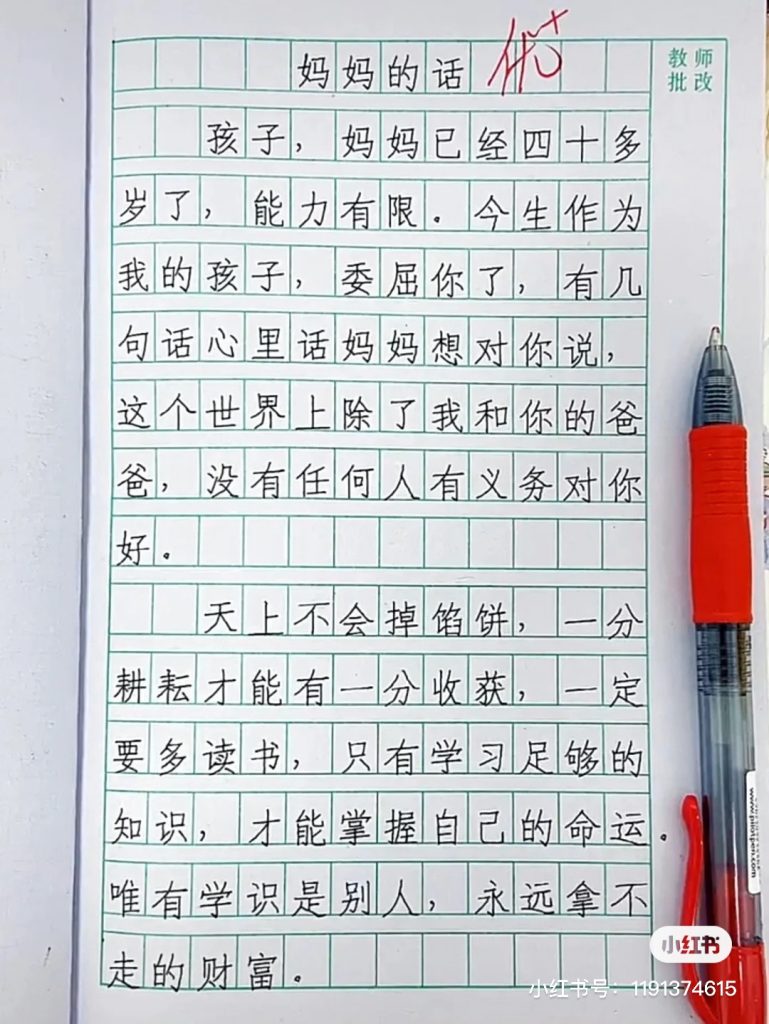 妈妈的话 优+
教师
批改
孩子，妈妈已经四十多
岁了，能力有限。今生作为
我的孩子，委屈你了，有几
句话心里话妈妈想对你说，
这个世界上除了我和你的爸
爸，没有任何人有义务对你
好。
天上不会掉馅饼，一分
耕耘才能有一分收获，一定
要多读书，只有学习足够的
知识，才能掌握自己的命运。
唯有学识是别人，永远拿不
走的财富。
www.pilotpen.com
小红书
小红书号：1191374615